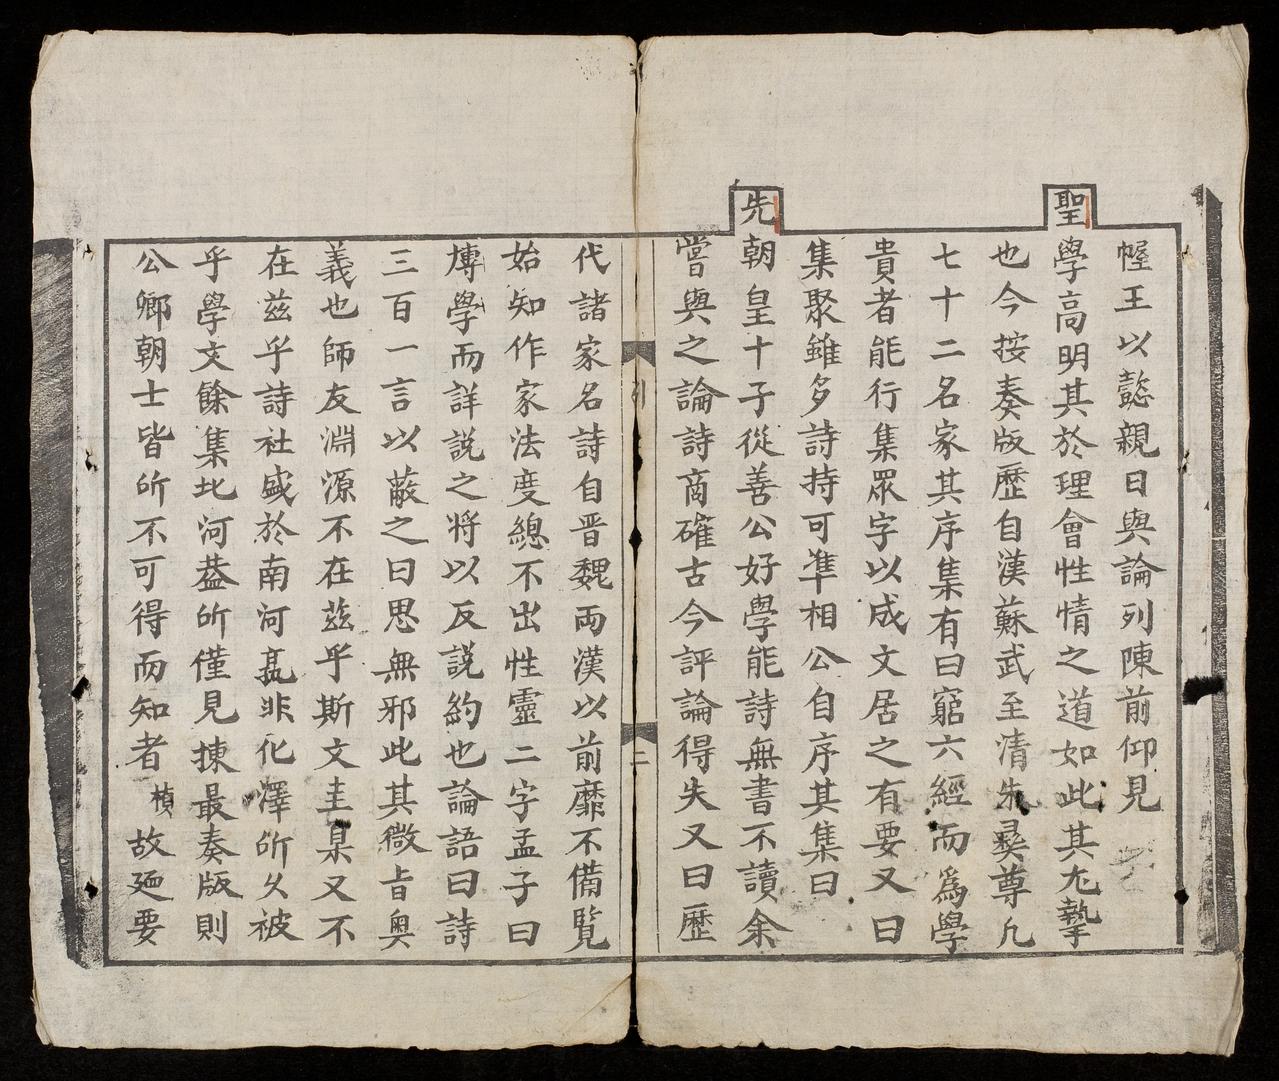 幄王以懿親日與論列陳前仰見
聖學高明其於理會性情之道如此其尤摯
也今按奏版歷自漢蘇武至清朱彝尊凡
七十二名家其序集有曰窮六經而爲學
貴者能行集眾字以成文居之有要又曰
集聚雖多詩持可準相公自序其集曰
先朝皇十子從善公好學能詩無書不讀余
嘗與之論詩商確古今評論得失又曰歷
列
二
代諸家名詩自晋魏兩漢以前靡不備覧
始知作家法度總不出性靈二字孟子曰
愽學而詳説之将以反説約也論語曰詩
三百一言以蔽之曰思無邪此其微旨奥
義也師友淵源不在茲乎斯文圭臬又不
在茲乎詩社盛於南河髙非化澤所久被
乎學文餘集北河葢所僅見揀最奏版則
公卿朝士皆所不可得而知者楨故廼要